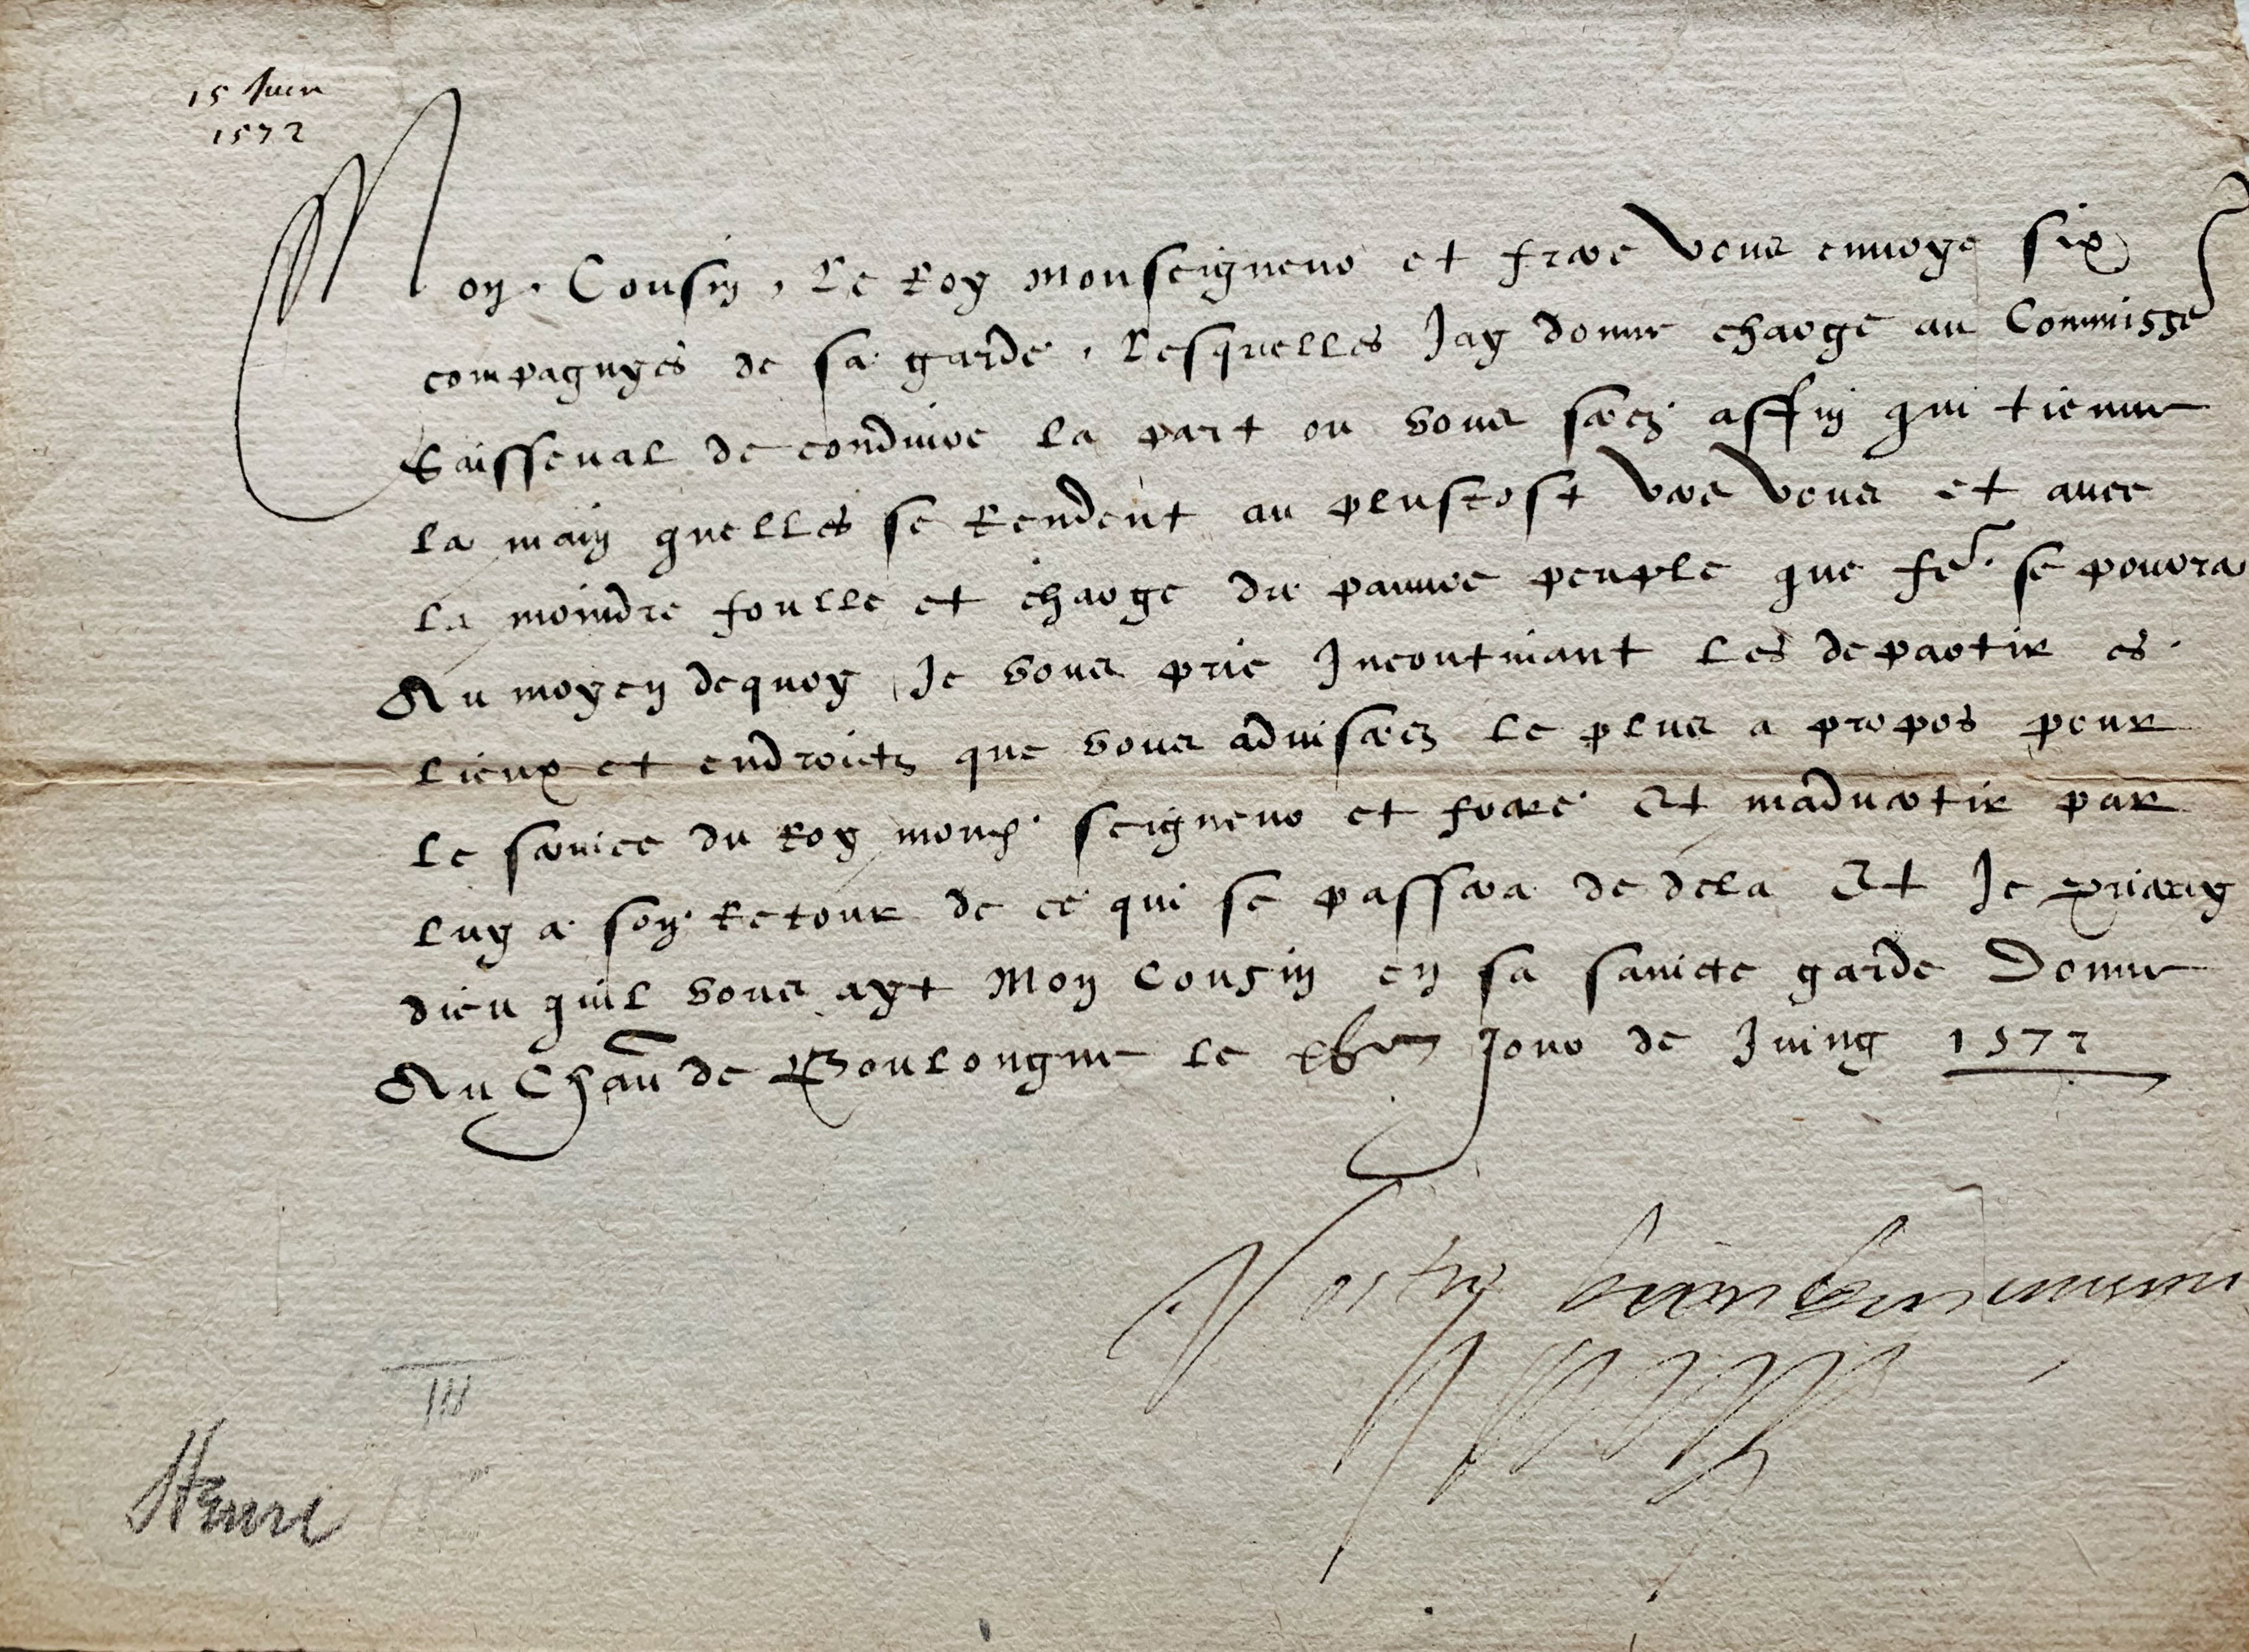 15 Juin
1572
Mon Cousin, Le Roy monseigneur et frere vous envoye six
compagnyes de sa garde, Lesquelles Jay donne charge au Commissre
Saisseval de conduire la part ou vous serez affin qui tienne
la main quelles se Rendent au plustost vers vous et avec
la moindre foulle et charge du pauvre peuple que fe. se pourra
Au moyen dequoy Je vous prie Incontinant les departir es
lieux et endroictz que vous adviserez le plus a propos pour
le service du Roy mond. seigneur et frere Et madvertir par
luy a son Retour de ce qui se passera de dela Et Je prieray
dieu quil vous ayt Mon Cousin en sa saincte garde Donne
Au Chau de Boulongne le xvme Jour de Juing 1572
Vostre bien bon cousin
III
Henri